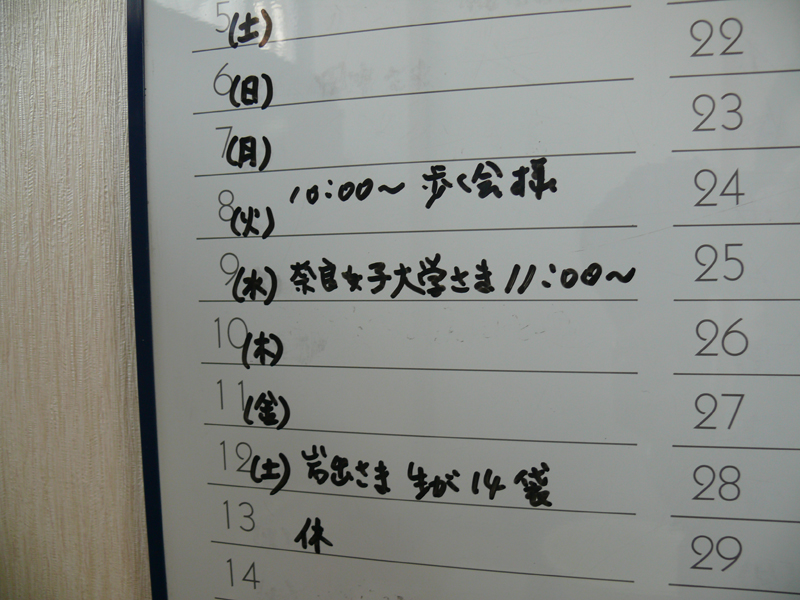 5(土)
6(日)
7(月)
8(火) 10:00〜 歩く会様
9(水) 奈良女子大学さま 11:00〜
10(木)
11(金)
12(土) 岩出さま 生が 14 袋
13 休
14
22
23
24
25
26
27
28
29